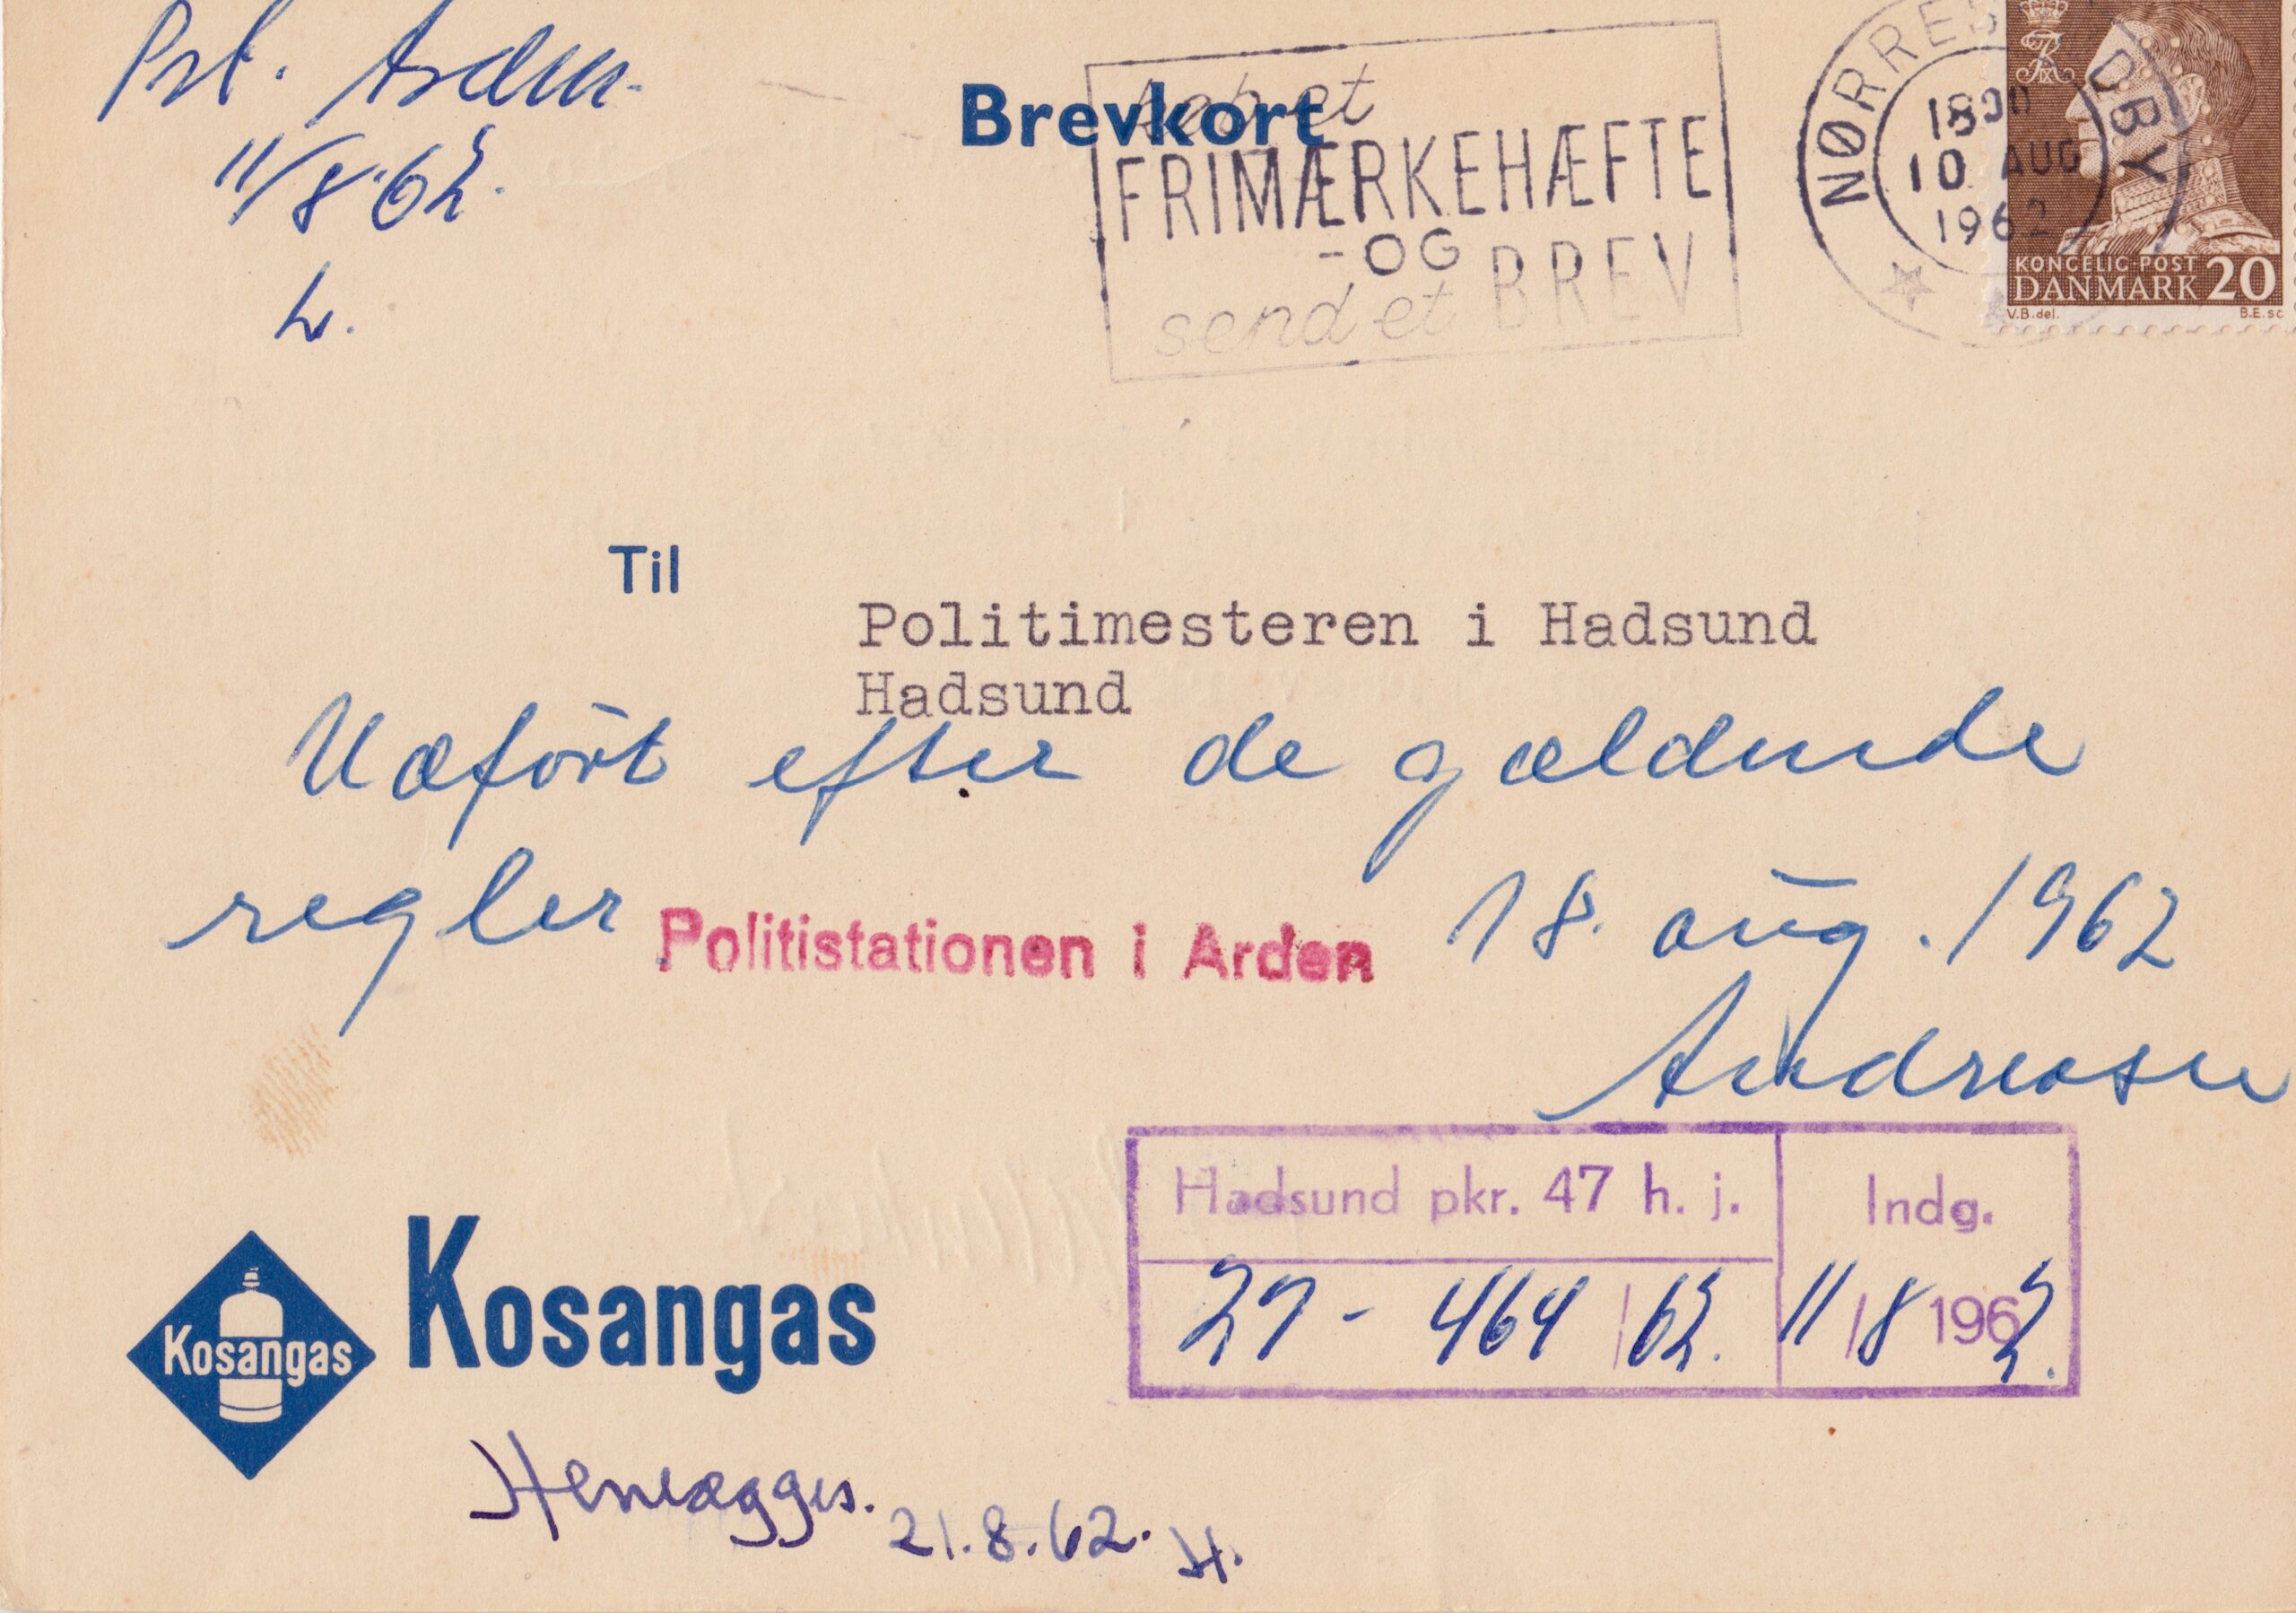 Pst. Arden.
11/8.62.
h.
Brevkort
køb et
FRIMÆRKEHÆFTE
-OG
send et BREV
NØRRESUNDBY
10 AUG
1962
KONGELIG POST
DANMARK 20
V.B. del. B.E. sc
Til
Politimesteren i Hadsund
Hadsund
efter de gældende
regler Politistationen i Arden 18. aug. 1962
Andreasen
Hadsund pkr. 47 h. j. Indg.
27 - 464 / 62. 11 / 8 1962.
Kosangas Kosangas
Henlægges. 21.8.62. H.